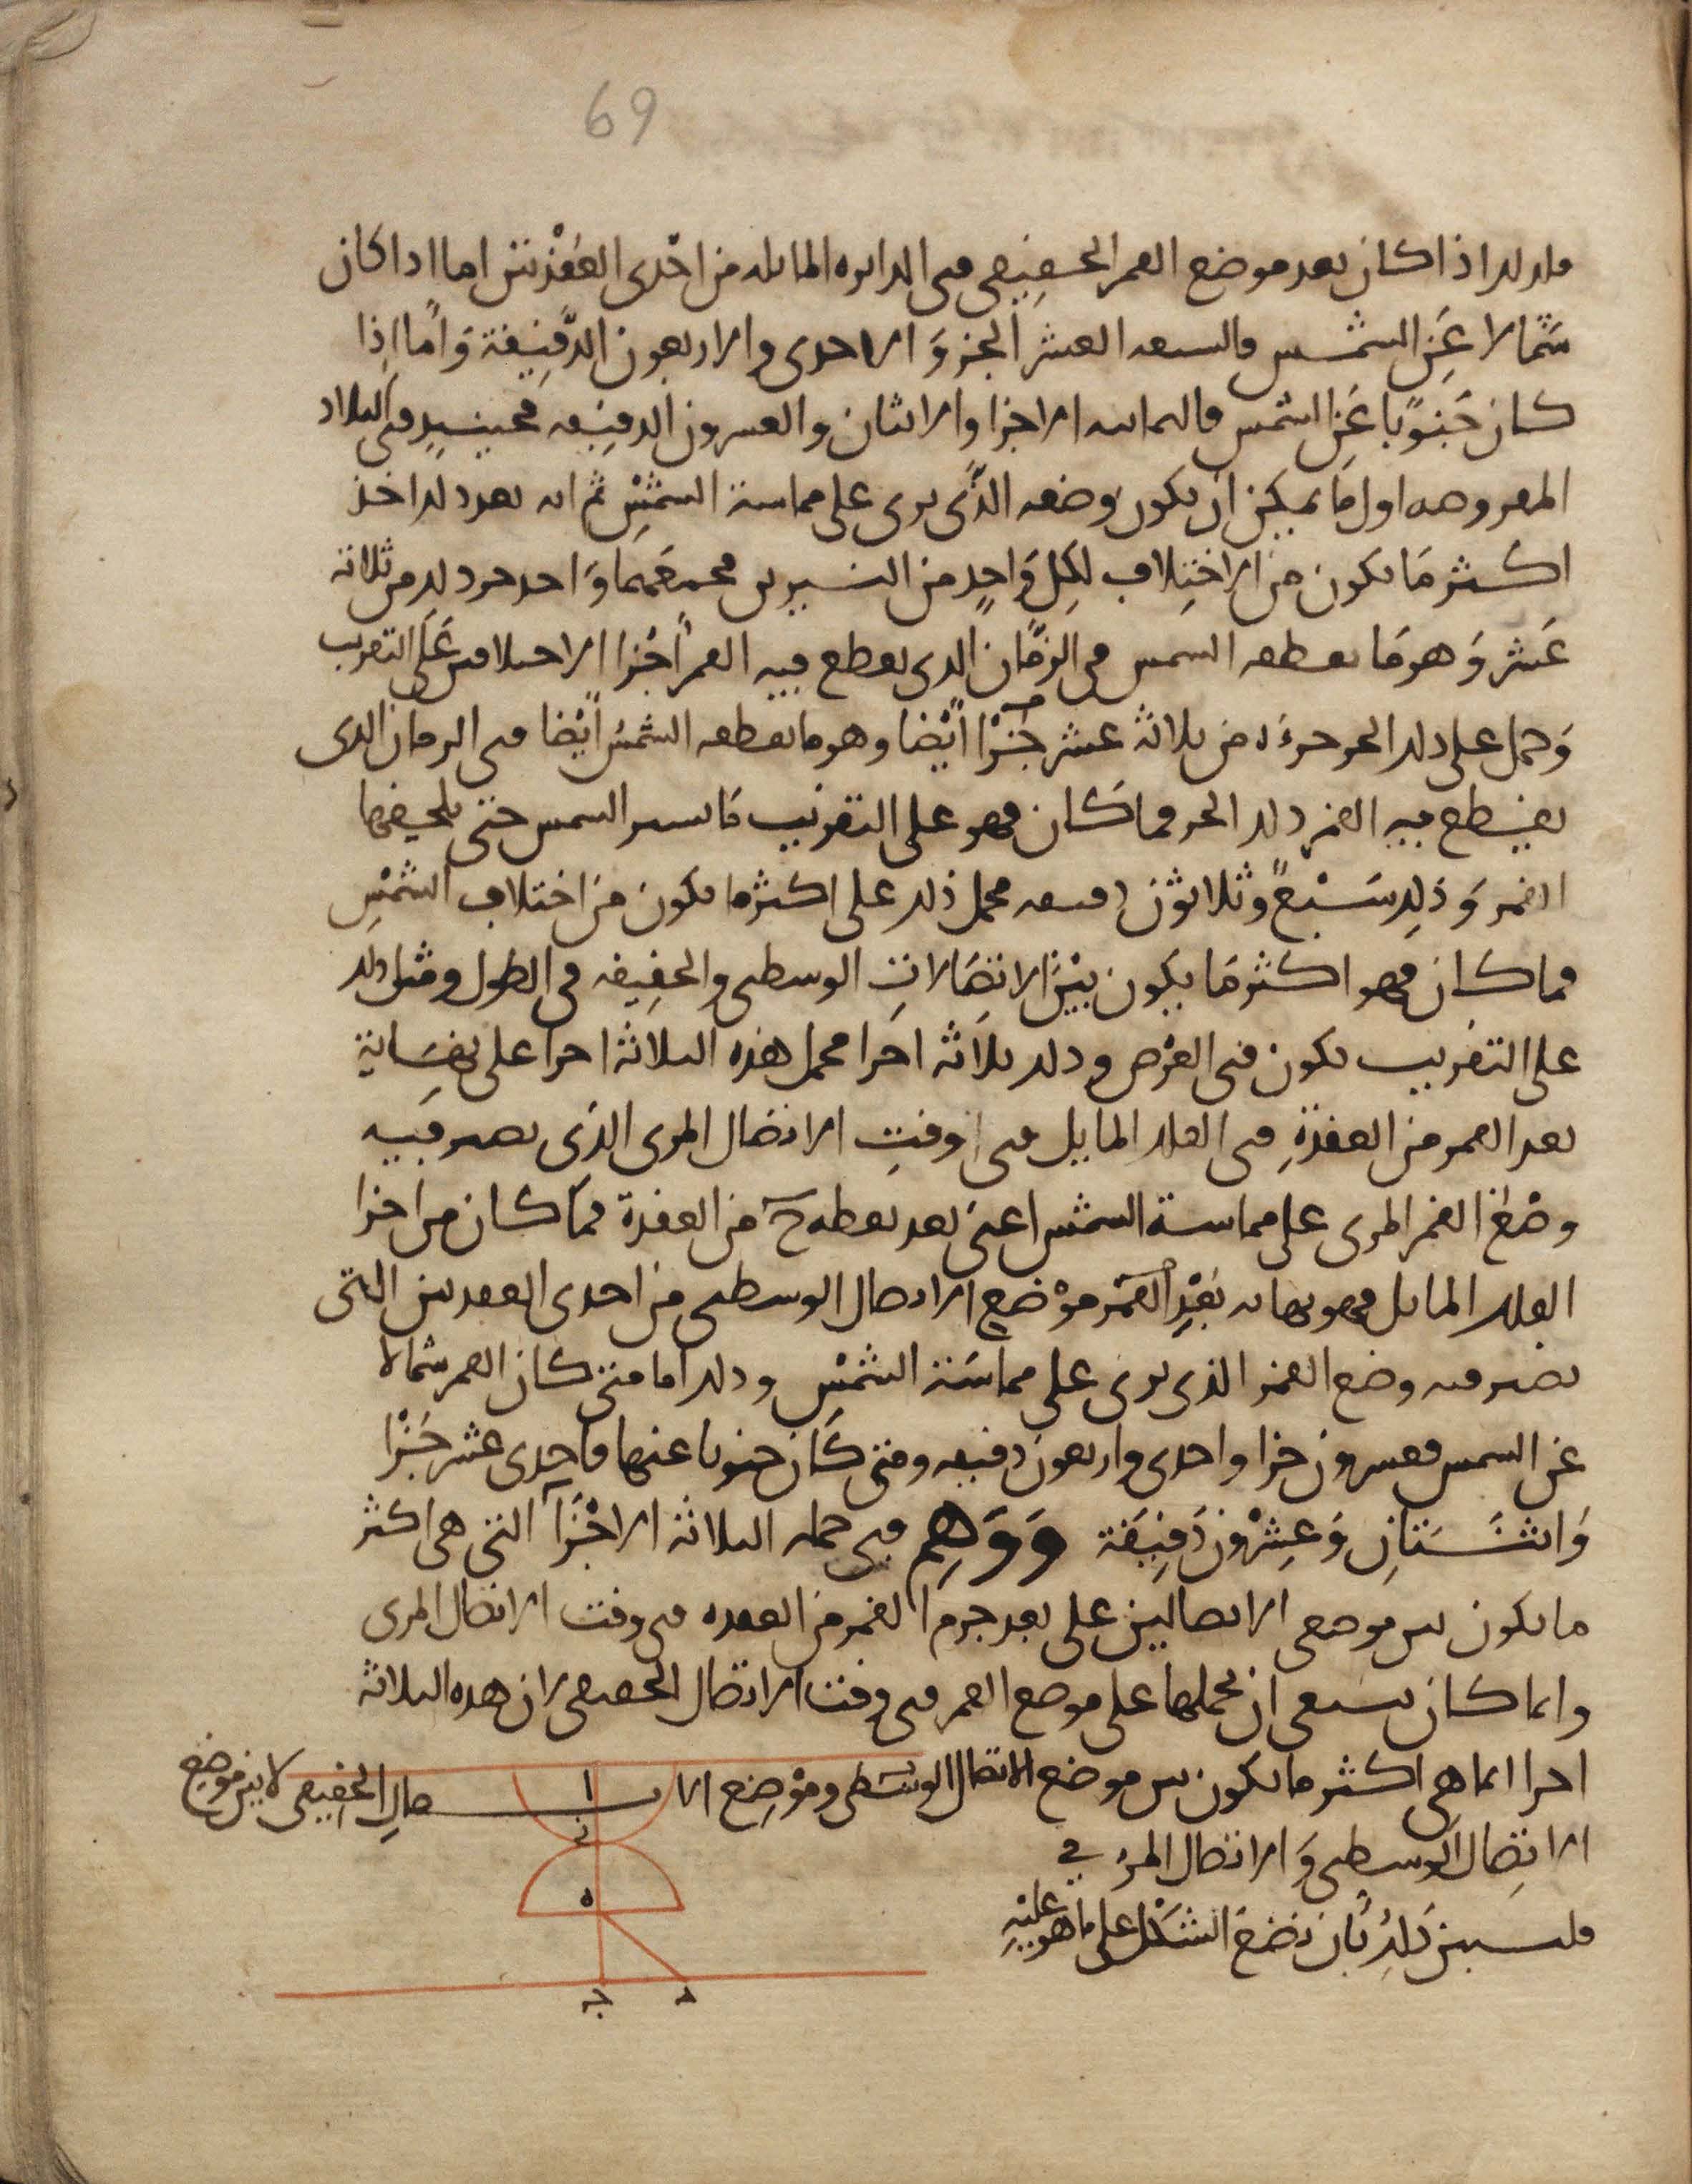 69
فلذلك اذا كان بعد موضع القمر الحقيقي في الدايرة المايلة من احدى العقدتين اما اذا كان
شمالا عن الشمس فالسبعة العشر الجزو الاحدى والاربعون الدقيقة واما اذا
كان جنوبا عن الشمس فالثمانية الاجزا والاثنان والعشرون الدقيقة فحينيذ في البلاد
المفروضة اول ما يمكن ان يكون وضعه الذي يرى على مماسة الشمس ثم انه بعد ذلك اخذ
اكثر ما يكون من الاختلاف لكل واحد من النيرين فجمعهما واخذ جزا من ثلاثة
عشر وهو ما تقطعه الشمس في الزمان الذي يقطع فيه القمر اجزا الاختلافين على التقريب
وحمل على ذلك الجز جزءه من ثلاثة عشر جزا ايضا وهو ما تقطعه الشمس ايضا في الزمان الذي
يقطع فيه القمر ذلك الجز فما كان فهو على التقريب ما تسير الشمس حتى يلحقها
القمر وذلك سبع وثلاثون دقيقة فحمل ذلك على اكثر ما يكون من اختلاف الشمس
فما كان فهو اكثر ما يكون بين الاتصالات الوسطى والحقيقة في الطول ومثل ذلك
على التقريب يكون في العرض وذلك ثلاثة اجزا فحمل هذه الثلاثة اجزا على نهاية
بعد القمر من العقدة في الفلك المايل في وقت الاتصال المرى الذي يصير فيه
وضع القمر المرى على مماسة الشمس اعني بعد نقطة ح من العقدة فما كان من اجزا
الفلك المايل فهو نهاية بعد القمر موضع الاتصال الوسطى من احدى العقدتين التي
يصير فيه وضع القمر الذي يرى على مماسة الشمس وذلك اما متى كان القمر شمالا
عن الشمس فعشرون جزا واحدى واربعون دقيقة ومتى كان جنوبا عنها فاحدى عشر جزا
واثنتان وعشرون دقيقة ووهم في حمله الثلاثة الاجزا التي هي اكثر
ما يكون بين موضعي الاتصالين على بعد جرم القمر من العقدة في وقت الاتصال المرى
وانما كان ينبغي ان يحملها على موضع القمر في وقت الاتصال الحقيقي لان هذه الثلاثة
اجزا انما هي اكثر ما يكون بين موضع الاتصال الوسطى وموضع الاتصال الحقيقي لا بين موضع
الاتصال الوسطى والاتصال المرى
فلنبين ذلك بان نضع الشكل على ما هو عليه
ا
ز
ه
ج
د